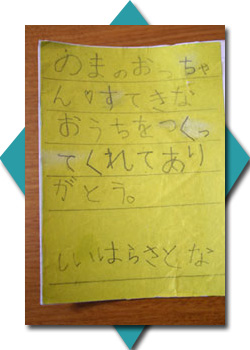 のまのおっちゃ
んりすてきな
おうちをつくっ
てくれてあり
がとう。
しいはらさとな